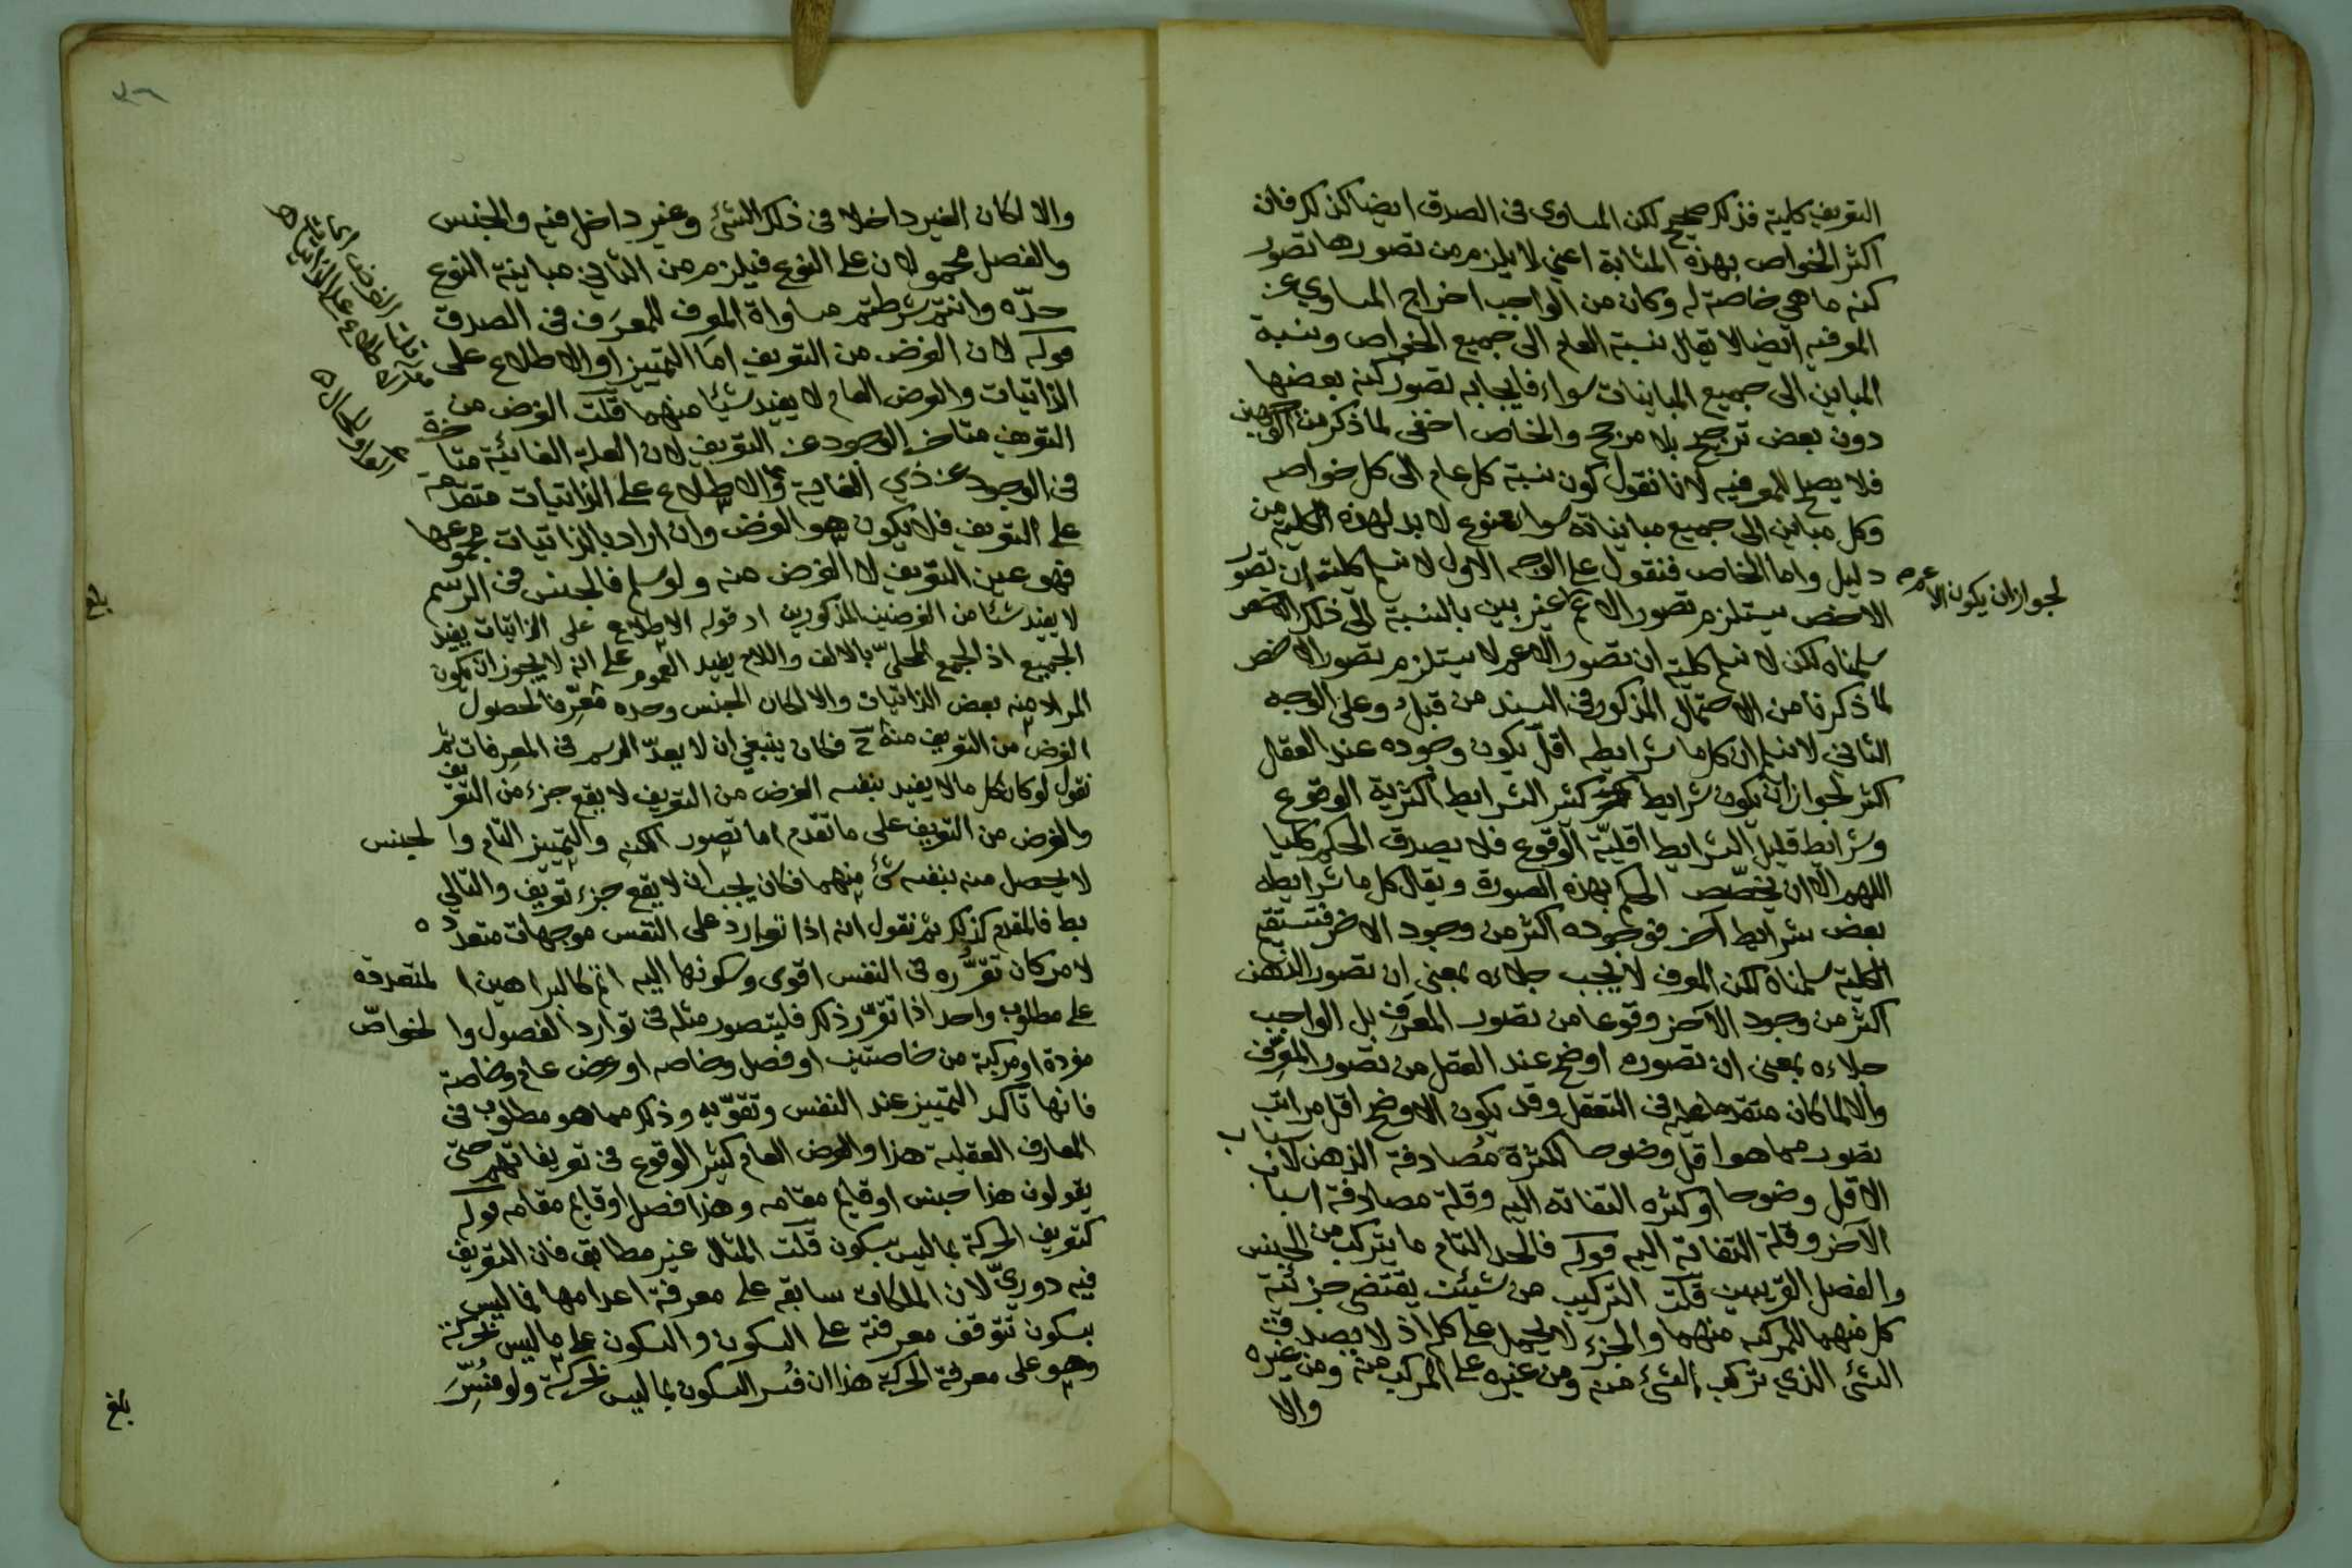 التعريف كلية فذلك صحيح لكن المساوى فى الصدق ايضا كذلك فان
اكثر الخواص بهذه المثابة اعني لا يلزم من تصورها تصور
كنه ما هي خاصة له وكان من الواجب اخراج المساوي عن
المعرفيه ايضا لا يقال نسبة العام الى جميع الخواص ونسبة
المباين الى جميع المباينات سواء فايجابه تصور كنه بعضها
دون بعض ترجيح بلا مرجح والخاص اخفى لما ذكر من الوجهين
فلا يصلح للمعرفيه لانا نقول كون نسبة كل عام الى كل خواصه
وكل مباين الى جميع مبايناته سوا ممنوع لا بد لهذه الكلية من
دليل واما الخاص فنقول على الوجه الاول لا نسلم كلية ان تصور
لجواز ان يكون الاعم
الاخص يستلزم تصور الاعم غير بين بالنسبة الى ذلك الاخص
سلمناه لكن لا نسلم كلية ان تصور الاعم لا يستلزم تصور الاخص
لما ذكرنا من الاحتمال المذكور فى السند من قبل وعلى الوجه
الثاني لا نسلم ان كل ما شرايطه اقل يكون وجوده عند العقل
اكثر لجواز ان يكون شرايط كثير الشرايط اكثرية الوقوع
وشرايط قليل الشرايط اقلية الوقوع فلا يصدق الحكم كليا
اللهم الا ان يخصص الحكم بهذه الصورة ويقال كل ما شرايطه
بعض شرايط آخر فوجوده اكثر من وجود الاخر فتستقيم
الكلية سلمناه لكن المعرف لا يجب جلاءه بمعنى ان تصور الذهن
اكثر من وجود الآخر وقوعا من تصور المعرف بل الواجب
جلاءه بمعنى ان تصوره اوضح عند العقل من تصور المعرف
والا لما كان متقدما عليه فى التعقل وقد يكون الاوضح اقل مراتب
تصور مما هو اقل وضوحا لكثرة مصادفة الذهن لاسباب
الاقل وضوحا او كثره التفاته اليه وقلة مصادفة اسباب
الآخر وقلة التفاته اليه قوله فالحد التام ما يتركب من الجنس
والفصل القريبين قلت التركيب من شيئين يقتضى جزئية
كل منهما للمركب منهما والجزء لا يحمل على كله اذ لا يصدق
الشئ الذي تركب الشئ منه ومن غيره على المركب منه ومن غيره
والا
والا لكان الغير داخلا فى ذلك الشئ وغير داخل فيه والجنس
والفصل محمولان على النوع فيلزم من الثاني مباينة النوع
حده وانتم شرطتم مساواة المعرف للمعرف فى الصدق
قوله لان الغرض من التعريف اما التمييز او الاطلاع على
الذاتيات والعرض العام لا يفيد شيئا منهما قلت الغرض من
التعريف متاخر الوجود عن التعريف لان العلة الغائية متاخرة
فى الوجود عن ذي الغاية والاطلاع على الذاتيات متقدمة
على التعريف فلا يكون هو الغرض وان اراد بالذاتيات مجموعها
فهو عين التعريف لا الغرض منه ولو سلم فالجنس فى الرسم
لا يفيد شئا من الغرضين المذكورين اد قوله الاطلاع على الذاتيات يفيد
الجميع اذ الجمع المحلى بالالف واللام يفيد العموم على انه لا يجوز ان يكون
المراد منه بعض الذاتيات والا لكان الجنس وحده معرفا لحصول
الغرض من التعريف منه ح فكان ينبغي ان لا يعد الرسم فى المعرفات ثم
نقول لو كان كل ما لا يفيد بنفسه الغرض من التعريف لا يقع جزء من التعريف
والغرض من التعريف على ما تقدم اما تصور الكنه والتمييز التام والجنس
لا يحصل منه بنفسه شئ منهما فكان يجب ان لا يقع جزء تعريف والتالي
بط فالمقدم كذلك ثم نقول انه اذا توارد على النفس موجهات متعدده
لامر كان تقرره فى النفس اقوى وسكونها اليه اتم كالبراهين المتعددة
على مطلوب واحد اذا تقرر ذلك فليتصور مثله فى توارد الفصول والخواص
مفردة او مركبة من خاصتين او فصل وخاصه او عرض عام وخاصة
فانها تاكد التمييز عند النفس وتقويه وذلك مما هو مطلوب فى
المعارف العقلية هذا والعرض العام كثير الوقوع فى تعريفاتهم حتى
يقولون هذا جنس او قايم مقامه وهذا فصل او قايم مقامه قوله
كتعريف الحركة بما ليس بسكون قلت المثال غير مطابق فان التعريف
فيه دوري لان الملكات سابقه على معرفة اعدامها فما ليس
بسكون تتوقف معرفته على السكون والسكون على ما ليس بحركة
وهو على معرفة الحركة هذا ان فسر السكون بما ليس بحركة ولو فسر
بلغ
بلغ